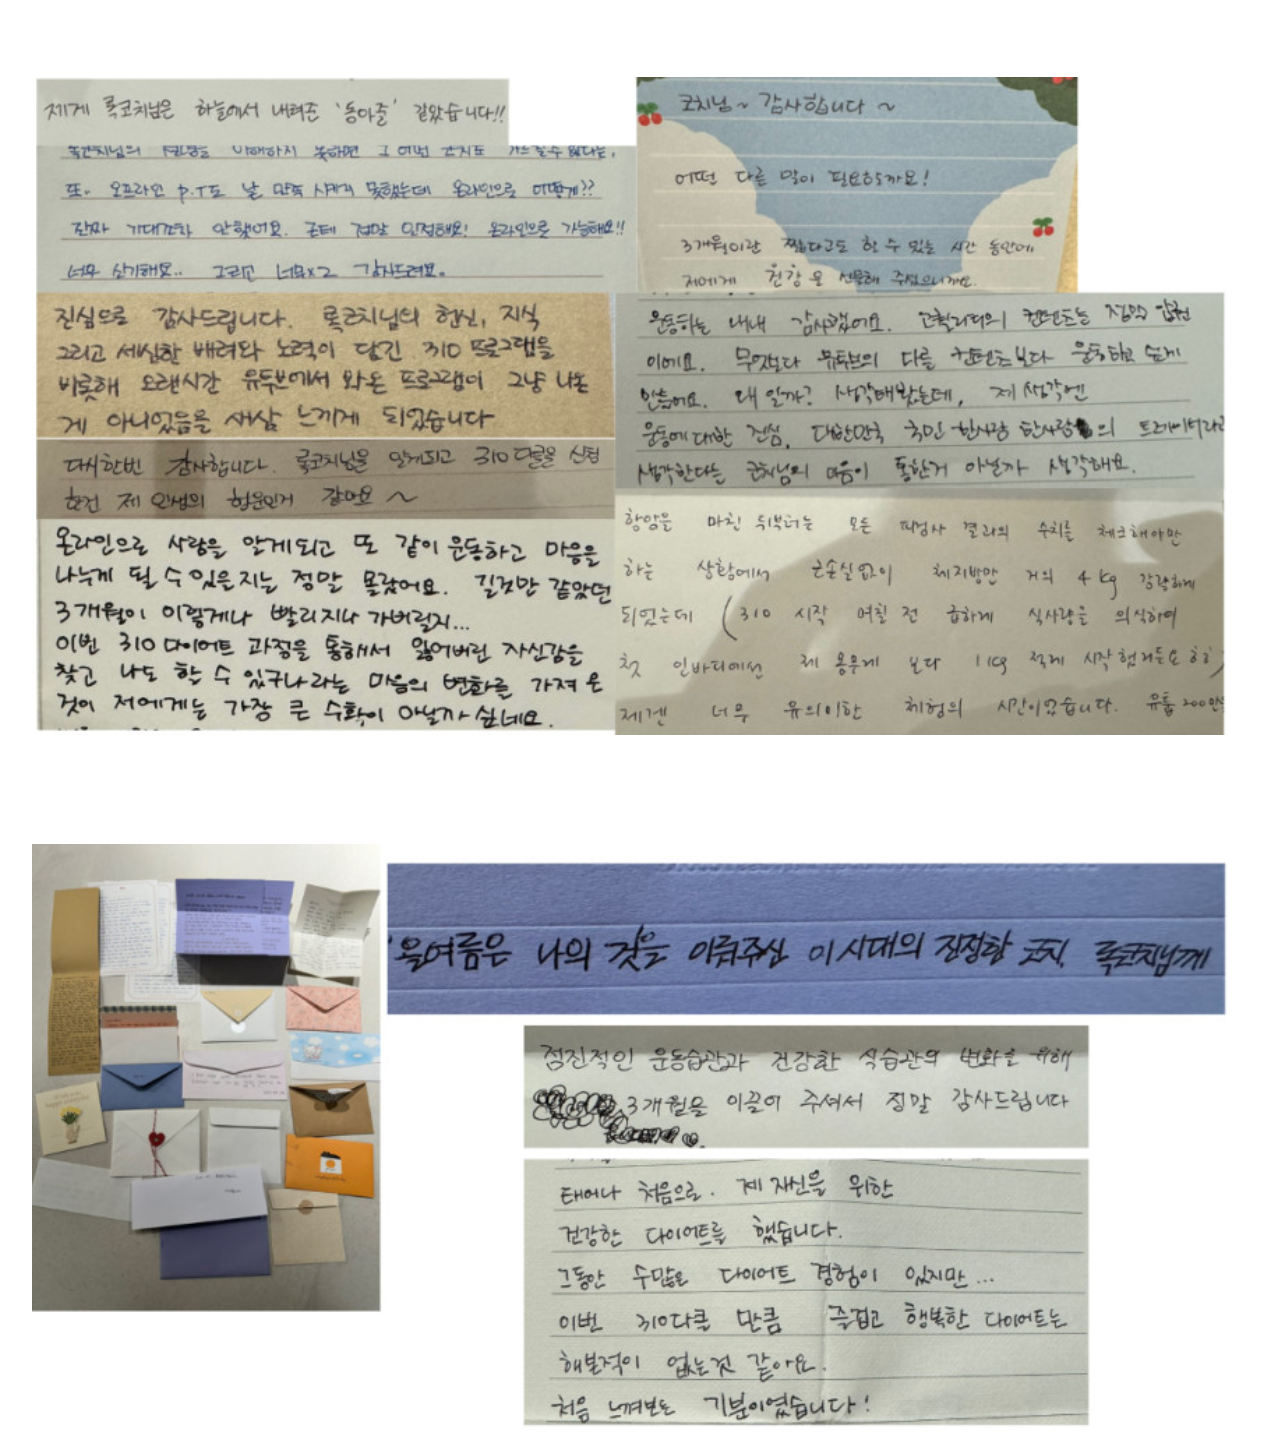 제게 록코치님은 하늘에서 내려준 '동아줄' 같았습니다!!
이해하지 못하면 그 어떤
또. 오프라인 P.T도 날 만족 시키지 못했는데 온라인으로 어떻게??
진짜 기대조차 안했어요. 근데 정말 인정해요! 온라인으로 가능해요!!
너무 신기해요.. 그리고 너무x2 감사드려요.
진심으로 감사드립니다. 록코치님의 헌신, 지식
그리고 세심한 배려와 노력이 담긴 310 프로그램을
비롯해 오랜시간 유튜브에서 와온 프로그램이 그냥 나온
게 아니었음을 새삼 느끼게 되었습니다
다시한번 감사합니다. 록코치님을 알게되고 310다클을 신청
한건 제 인생의 행운인거 같아요~
온라인으로 사람을 알게되고 또 같이 운동하고 마음을
나누게 될 수 있을지는 정말 몰랐어요. 길것만 같았던
3개월이 이렇게나 빨리지나가버릴지...
이번 310다이어트 과정을 통해서 잃어버린 자신감을
찾고 나도 할 수 있구나라는 마음의 변화를 가져온
것이 저에게는 가장 큰 수확이 아닐까 싶네요.
코치님~ 감사합니다~
어떤 다른 말이 필요할까요!
3개월이란 짧다고도 할 수 있는 시간 동안에
저에게 건강을 선물해 주셨으니까요.
운동하는 내내 감사했어요. 고퀄리티의 컨텐츠는 정말 압권
이에요. 무엇보다 유튜브의 다른 컨텐츠보다 운동하고 싶게
만들어요. 왜 일까? 생각해봤는데, 제 생각엔
운동에 대한 진심, 대한민국 국민 한사람 한사람의 트레이너라고
생각한다는 코치님의 마음이 통한거 아닐까 생각해요.
항암을 마친 뒤부터는 모든 피검사 결과의 수치를 체크해야만
하는 상황에서 근손실없이 체지방만 거의 4kg 감량하게
되었는데 (310 시작 며칠 전 급하게 식사량을 의식하여
첫 인바디에선 제 몸무게 보다 1kg 적게 시작했거든요 히히)
제겐 너무 유의미한 체험의 시간이었습니다. 유튭 200만
'올여름은 나의 것'을 이뤄주신 이시대의 진정한 코치, 록코치님께
점진적인 운동습관과 건강한 식습관의 변화를 위해
3개월을 이끌어 주셔서 정말 감사드립니다
태어나 처음으로. 제 자신을 위한
건강한 다이어트를 했습니다.
그동안 수많은 다이어트 경험이 있지만...
이번 310다클 만큼 즐겁고 행복한 다이어트는
해본적이 없는것 같아요.
처음 느껴보는 기분이였습니다!